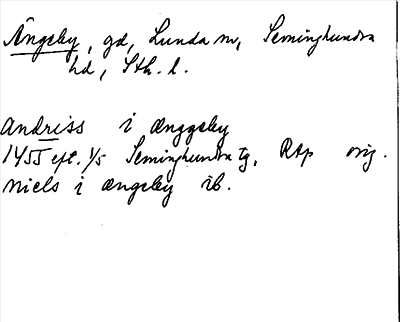 Ängeby, gd, Lunda sn, Seminghundra
hd, Sth. l.
andriss i ænggeby
1455 eft. 1/5 Seminghundra tg, RAp orig.
niels i ængeby ib.